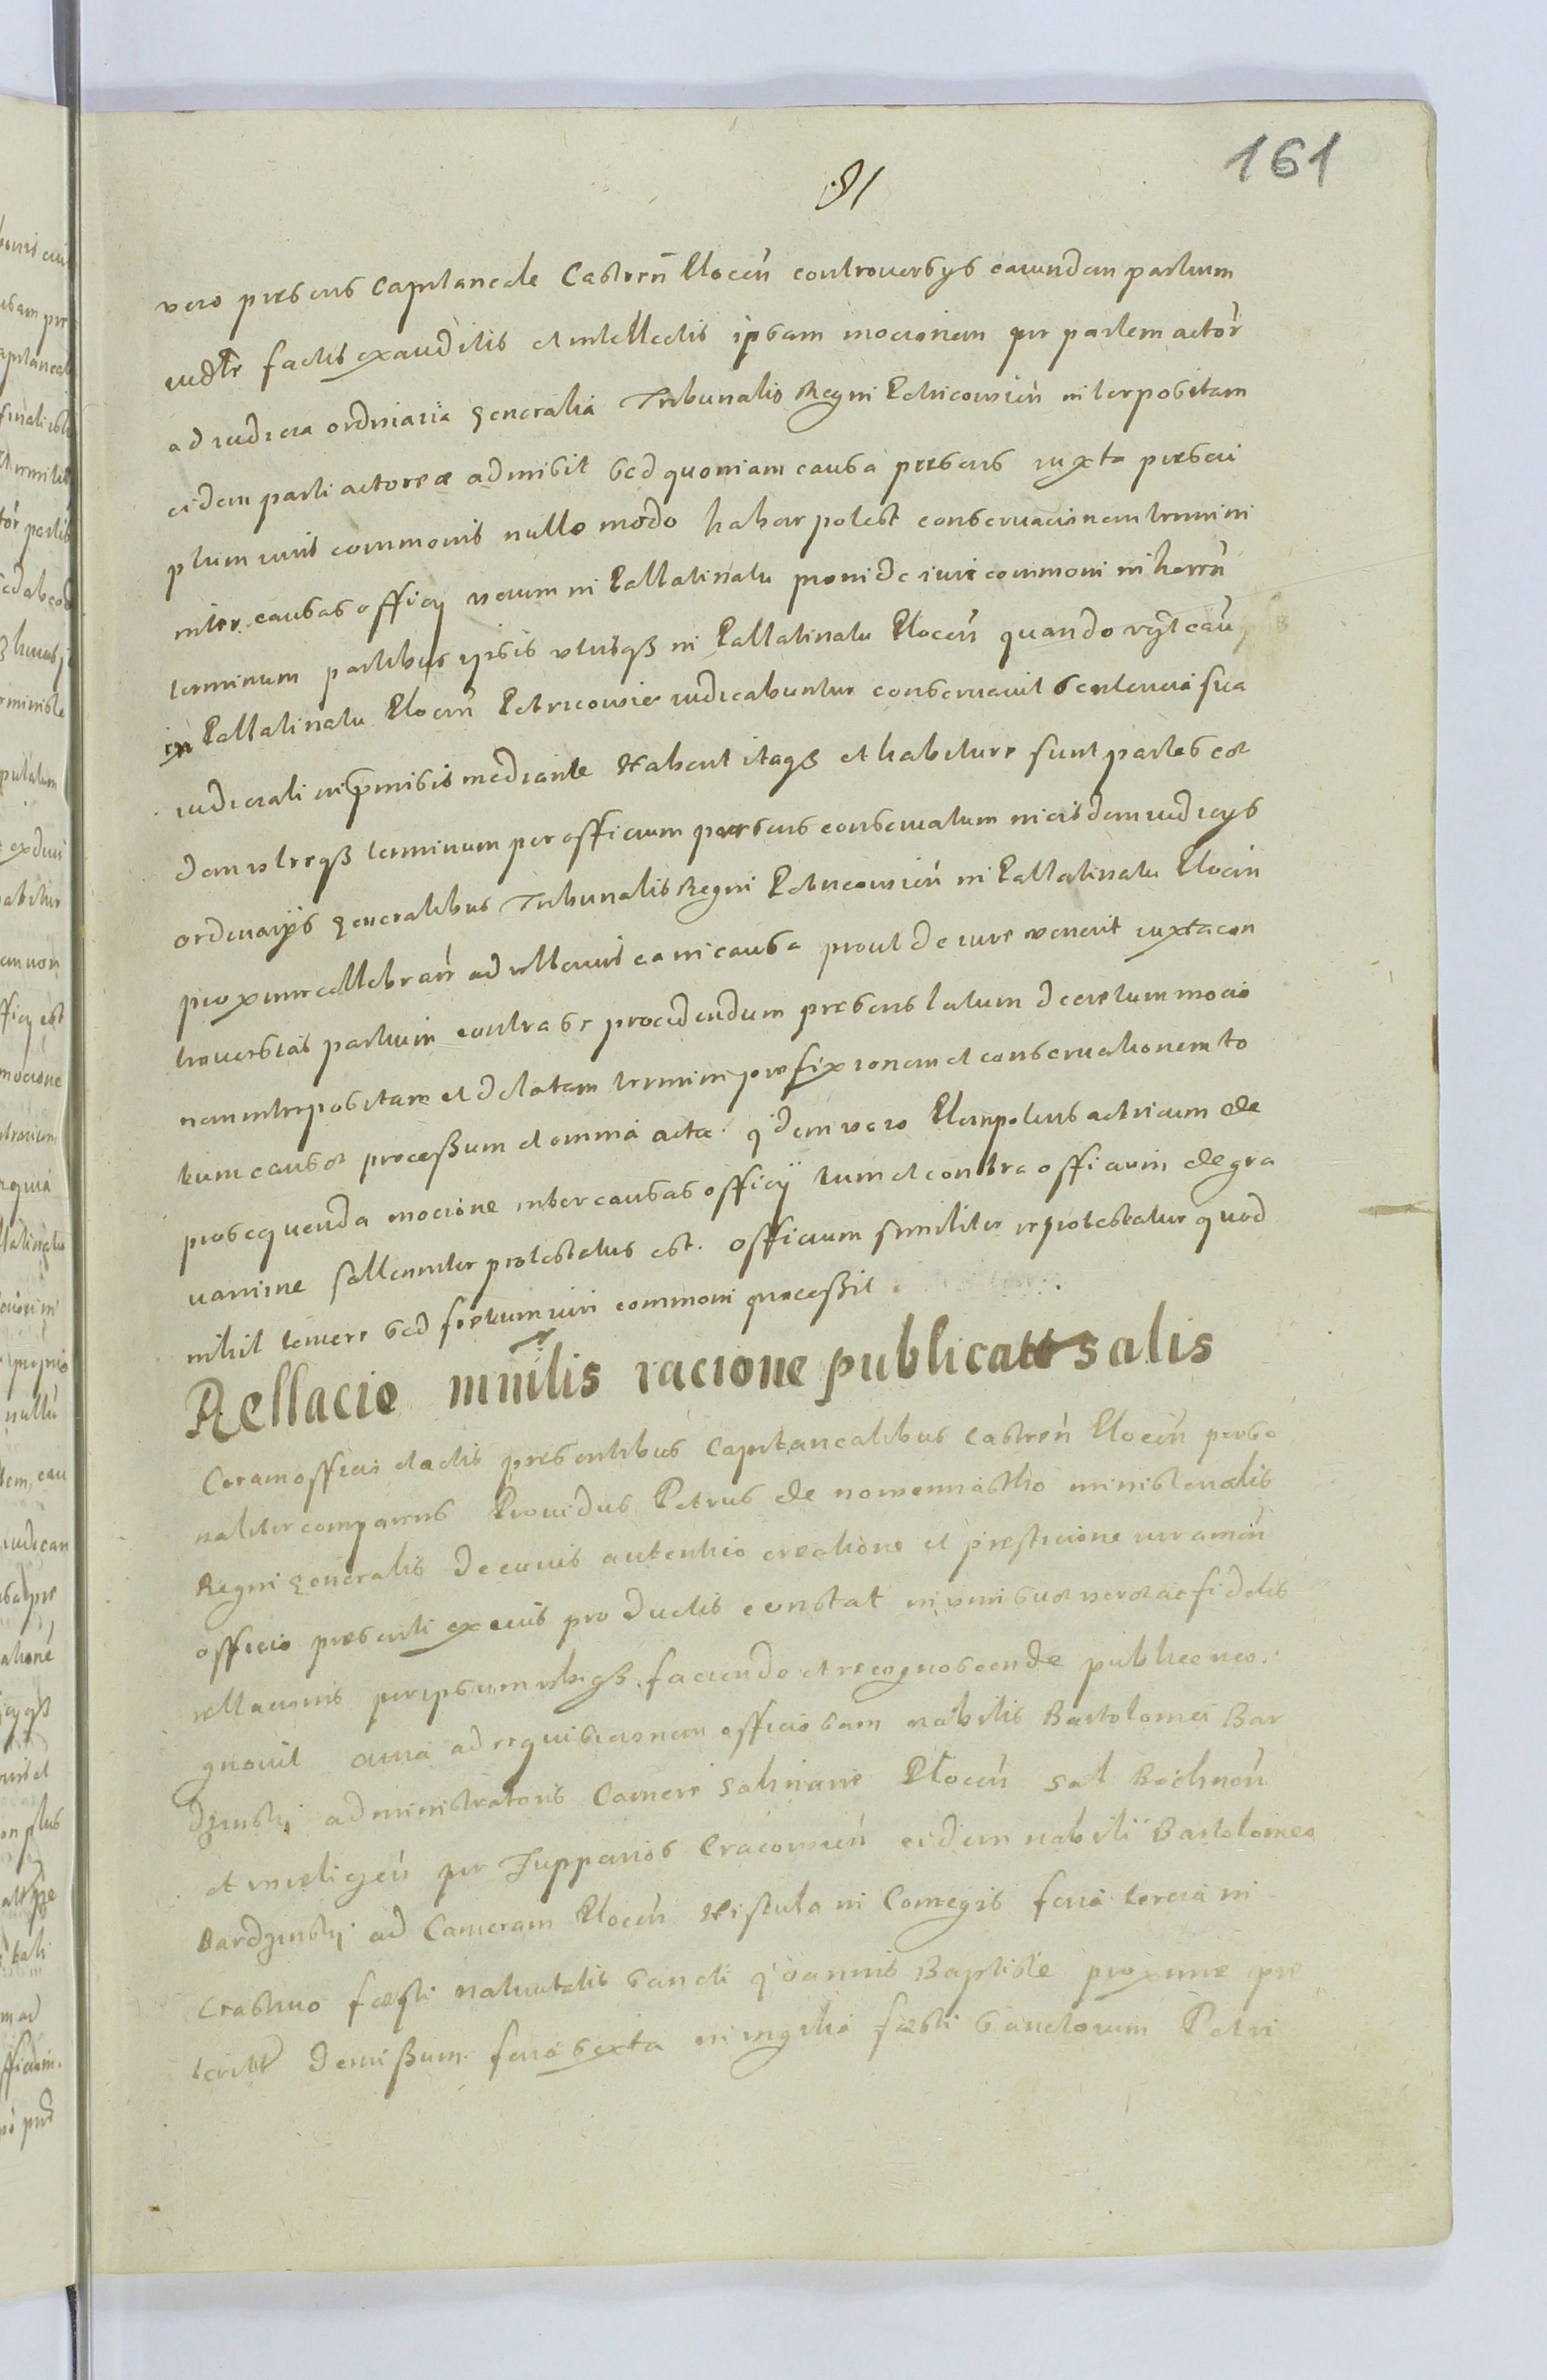 161
81
vero præsens Capitaneale Castreñ Ploceñ controversys earundem partium
iudlr factis exauditis et intellectis ipsam mocionem per partem actor̃
ad iudicia ordinaria generalia Tribunalis Regni Petricovień interpositam
eidem parti actoreæ admisit sed quoniam causa præsens iuxta præscri
ptum iuris commonis nullo modo habere potest conservacionem termini
inter causas officy verum in Pallatinatu proinde iuri commoni inheren̄
terminum partibus ipsis utrisqȝ in Pallatinatu Ploceń quando
in Pallatinatu Ploceń Petricowiæ iudicabuntur conservavit sentencia sua
iudiciali in præmissis mediante Habent itaqȝ et habituræ sunt partes eæ
dem utreqȝ terminum per officium præsens conservatum in eisdem iudicys
ordinarys generalibus Tribunalis Regni Petricovień in Pallatinatu Ploceń
proxime cellebrań ad ulterius ea in causa prout de iure venerit iuxta con
troversias partium contra se procedendum præsens latum decretum mocio
nem interpositam et delatam termini præfixionem et conservationem to
tum causæ processum et omnia acta. Idem vero Plenipotens actricum de
prosequenda mocione inter causas officy tum et contra officium de gra
vamine sollenniter protestatus est. Officium similiter reprotestatur quod
nihil temere sed secundum iuri commoni processit
Rellacio mnilis racione publicatt salis
Coram officio et actis præsentibus Capitanealibus Castreń Ploceń perso
naliter comparens Providus Petrus de nowemiastho ministerialis
Regni generalis de cuius autentico creatione et præsticione iuramen̄
officio præsenti ex eius productis constat in vim suæ veræ ac fidelis
rellacionis per ipsum ubiqȝ faciende et recognoscende publice reco
gnovit quia ad requisicionem officiosam nobilis Bartolomei Bar
dzinskj administratoris Camere Salinarie Ploceń sal Bochneń
et Vieliceń per Zupparios Cracovień eidem nobili Bartolomeo
Bardzinskj ad Cameram Ploceń Vistula in Comegis feria tercia in
Crastino fæsti nativitatis sancti Joannis Baptiste proxime præ
terite demissum feria sexta in vigilia fæsti sanctorum Petri